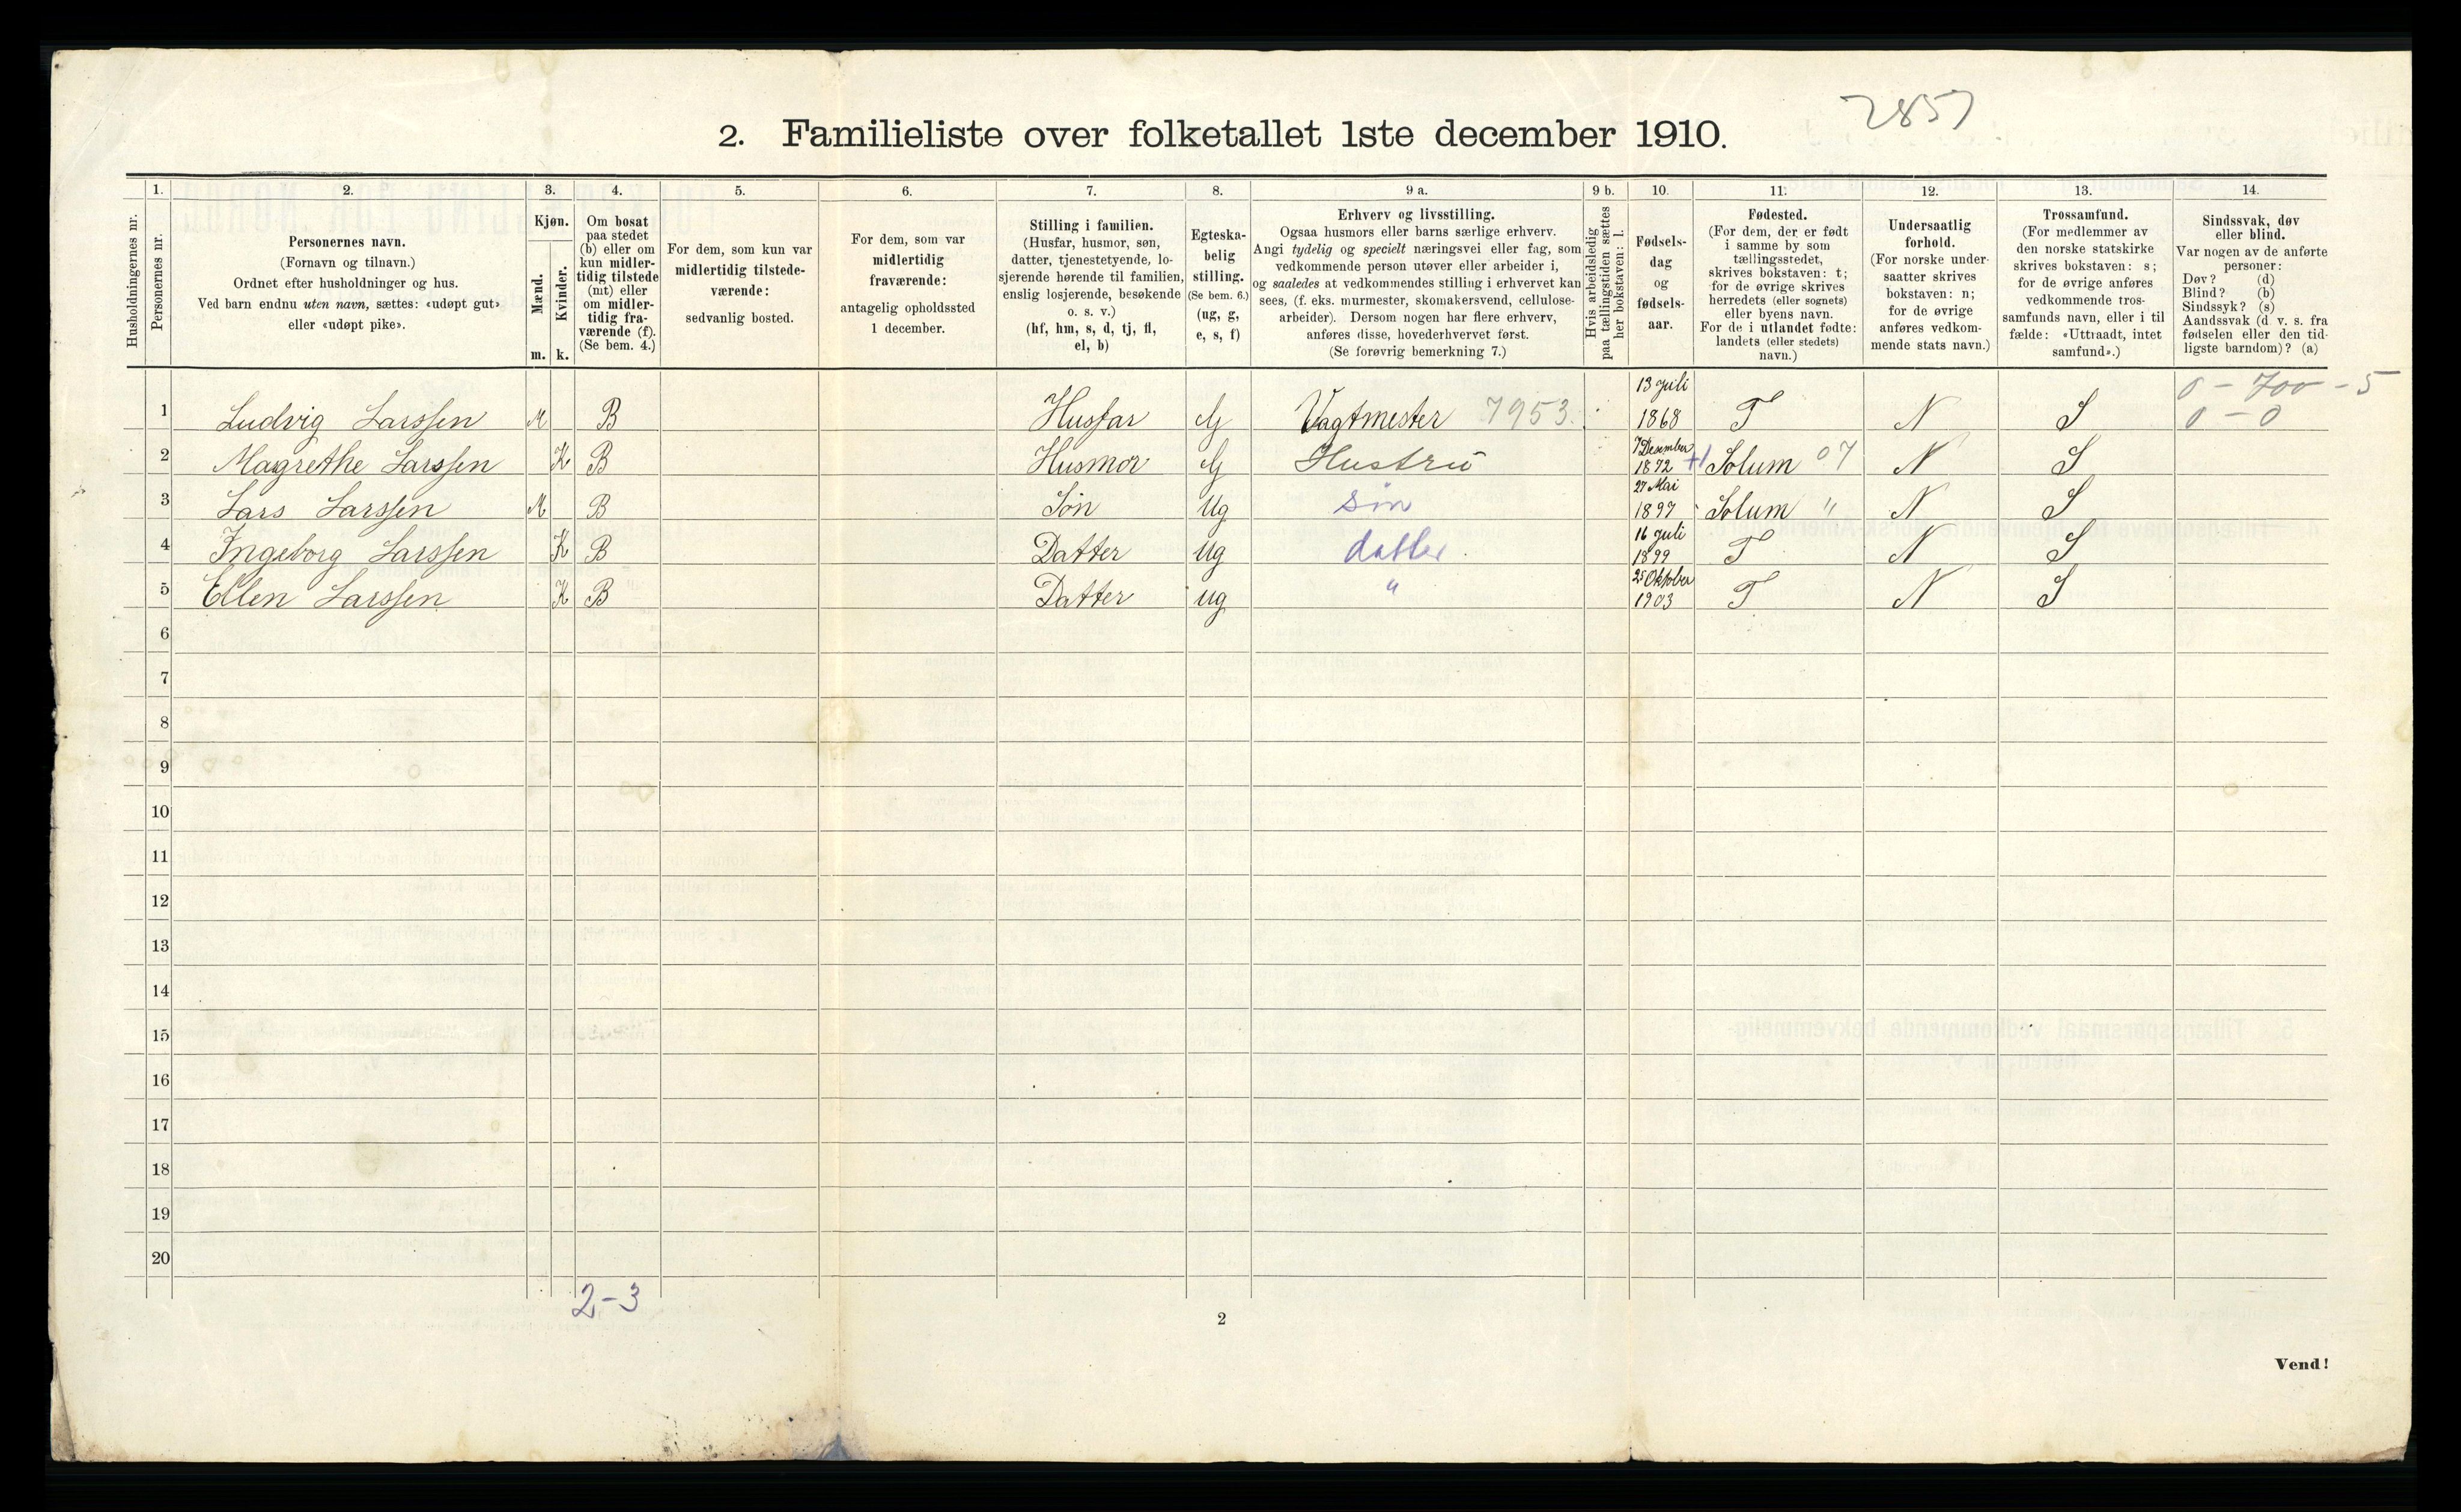 2857
2. Familieliste over folketallet 1ste december 1910.
1. 2. 3. 4. 5. 6. 7. 8. 9 a. 9 b. 10. 11. 12. 13. 14.
Husholdningernes nr.
Personernes nr.
Personernes navn.
(Fornavn og tilnavn.)
Ordnet efter husholdninger og hus.
Ved barn endnu uten navn, sættes: «udøpt gut»
eller «udøpt pike».
Kjøn.
Mænd.
Kvinder.
m. k.
Om bosat
paa stedet
(b) eller om
kun midler-
tidig tilstede
(mt) eller
om midler-
tidig fra-
værende (f).
(Se bem. 4.)
For dem, som kun var
midlertidig tilstede-
værende:
sedvanlig bosted.
For dem, som var
midlertidig
fraværende:
antagelig opholdssted
1 december.
Stilling i familien.
(Husfar, husmor, søn,
datter, tjenestetyende, lo-
sjerende hørende til familien,
enslig losjerende, besøkende
o. s. v.)
(hf, hm, s, d, tj, fl,
el, b)
Egteska-
belig
stilling.
(Se bem. 6.)
(ug, g,
e, s, f)
Erhverv og livsstilling.
Ogsaa husmors eller barns særlige erhverv.
Angi tydelig og specielt næringsvei eller fag, som
vedkommende person utøver eller arbeider i,
og saaledes at vedkommendes stilling i erhvervet kan
sees, (f. eks. murmester, skomakersvend, cellulose-
arbeider). Dersom nogen har flere erhverv,
anføres disse, hovederhvervet først.
(Se forøvrig bemerkning 7.)
Hvis arbeidsledig
paa tællingstiden sættes
her bokstaven: l.
Fødsels-
dag
og
fødsels-
aar.
Fødested.
(For dem, der er født
i samme by som
tællingsstedet,
skrives bokstaven: t;
for de øvrige skrives
herredets (eller sognets)
eller byens navn.
For de i utlandet fødte:
landets (eller stedets)
navn.)
Undersaatlig
forhold.
(For norske under-
saatter skrives
bokstaven: n;
for de øvrige
anføres vedkom-
mende stats navn.)
Trossamfund.
(For medlemmer av
den norske statskirke
skrives bokstaven: s;
for de øvrige anføres
vedkommende tros-
samfunds navn, eller i til
fælde: «Uttraadt, intet
samfund».)
Sindssvak, døv
eller blind.
Var nogen av de anførte
personer:
Døv? (d)
Blind? (b)
Sindssyk? (s)
Aandssvak (d. v. s. fra
fødselen eller den tid-
ligste barndom)? (a)
1 Ludvig Larssen M B Husfar G Vagtmester 7953. 13 juli 1868 T N S 0 - 700 - 5
0 - 0
2 Magrethe Larssen K B Husmor G Hustru 7 Desember 1872 Solum 07 N S
3 Lars Larssen M B Søn Ug søn 27 Mai 1897 Solum " N S
4 Ingeborg Larssen K B Datter Ug datter 16 juli 1899 T N S
5 Ellen Larssen K B Datter Ug " 25 Oktober 1903 T N S
6
7
8
9
10
11
12
13
14
15
16
17
18
19
20
2-3
2
Vend!